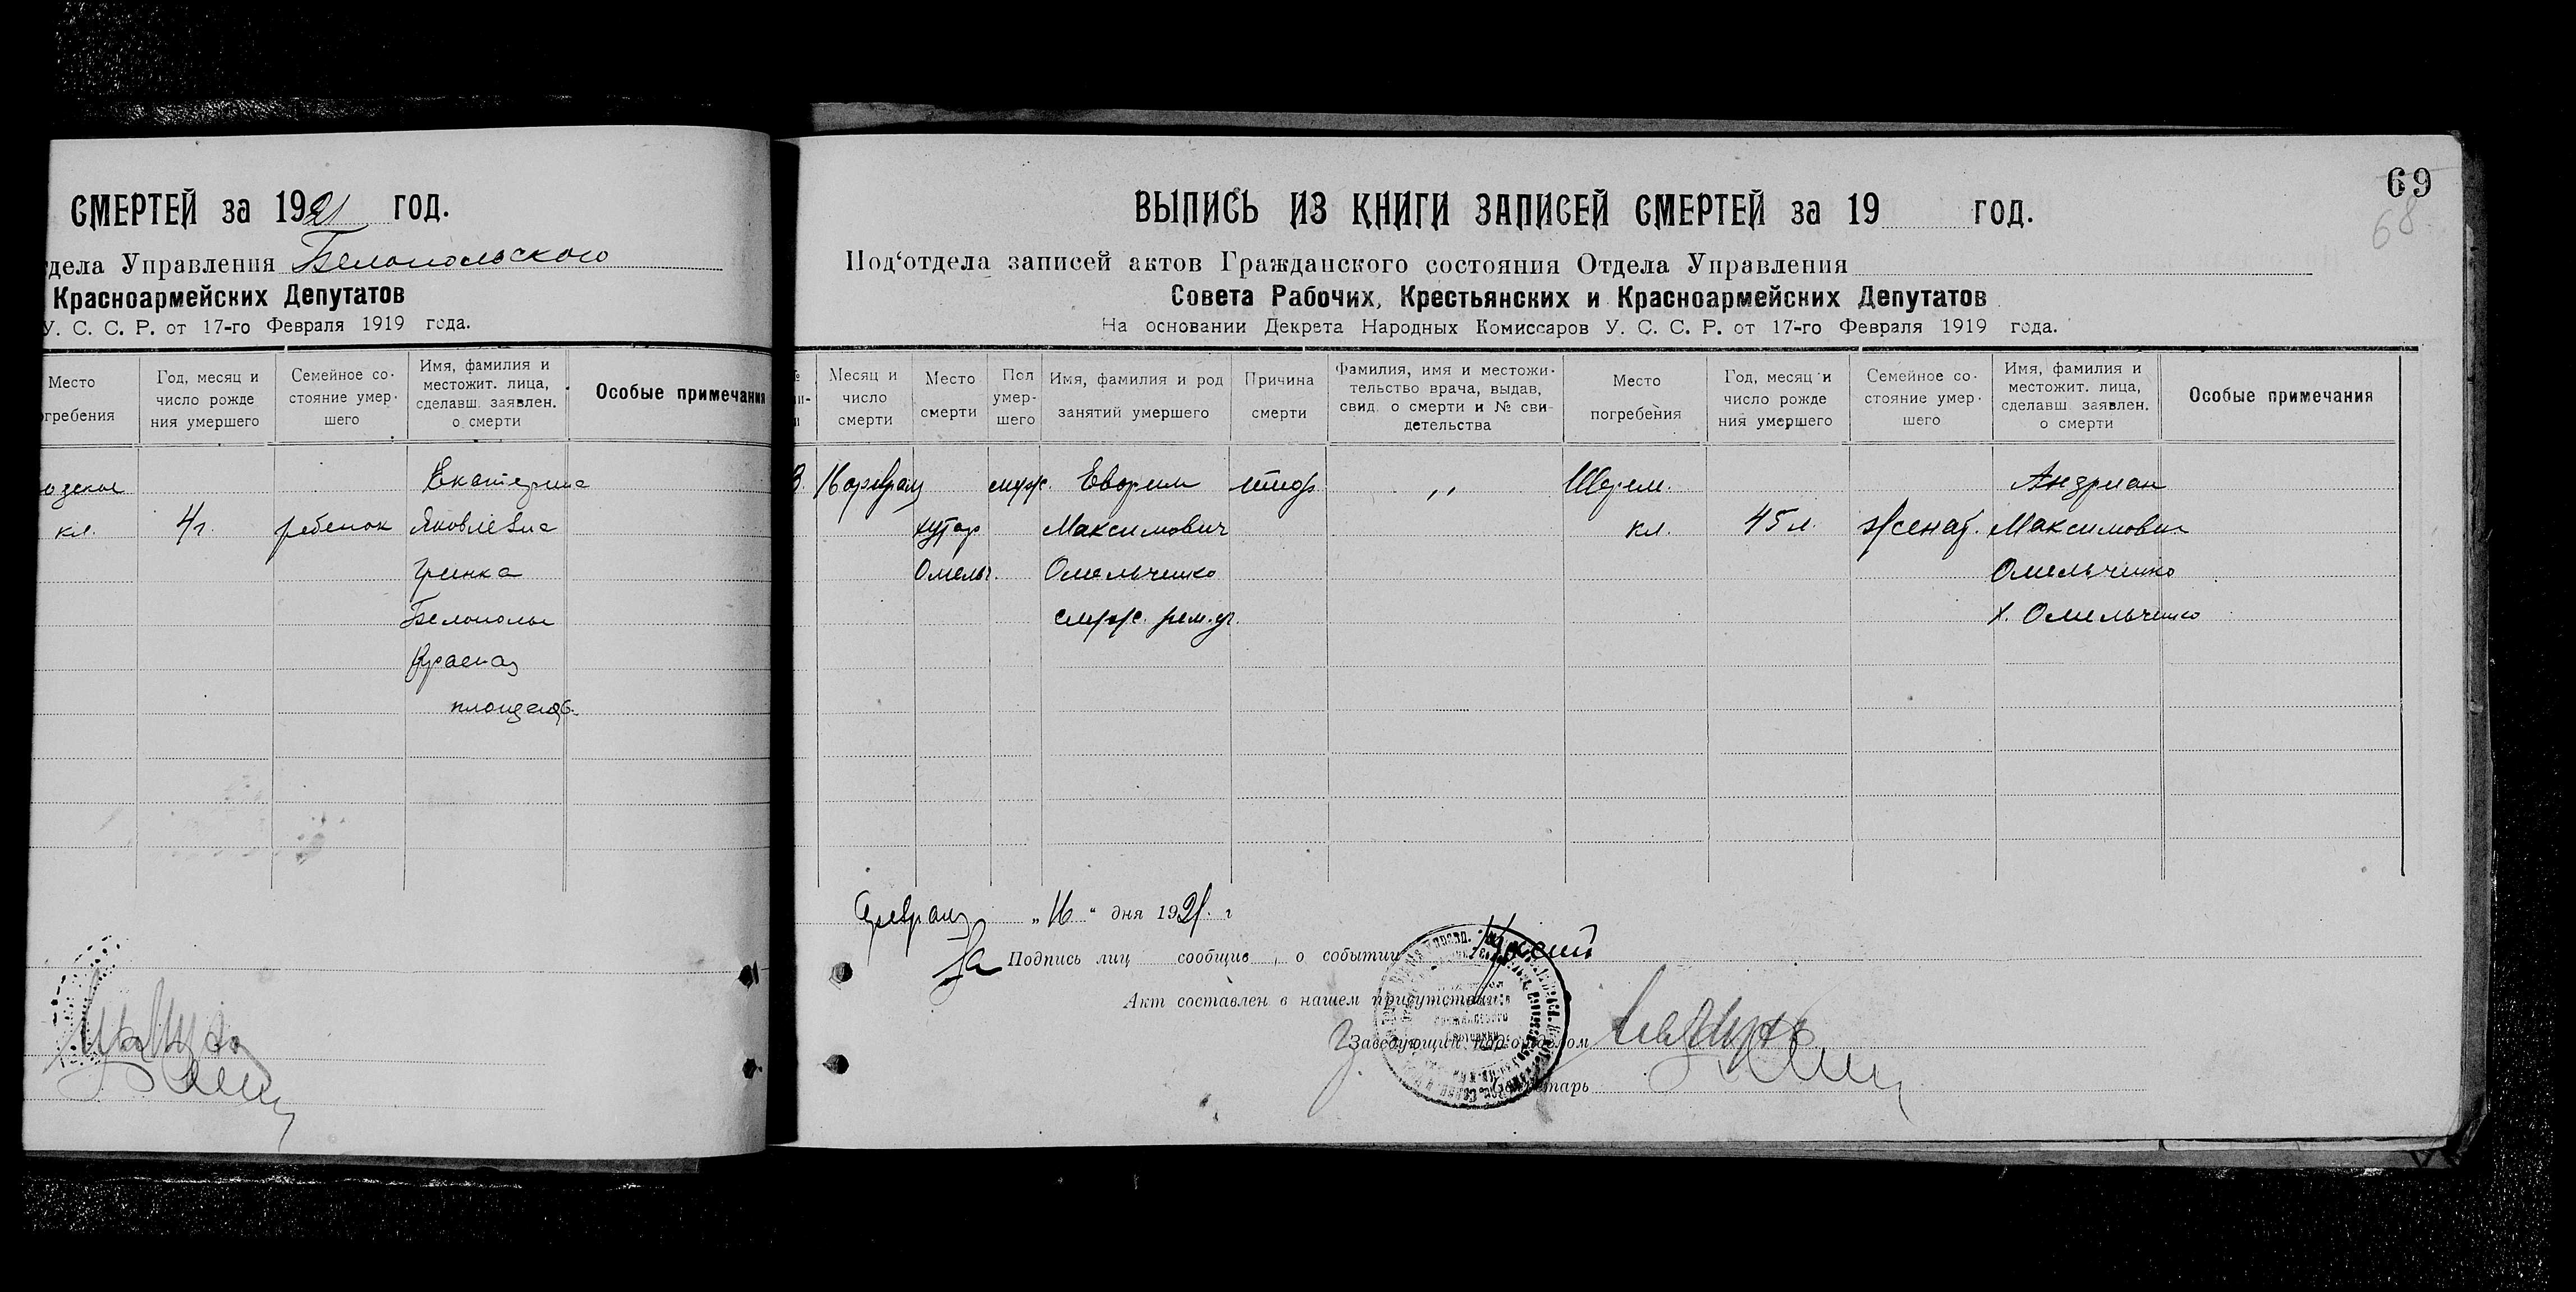 СМЕРТЕЙ за 1921 год.
тдела Управления Белопольского
Красноармейских Депутатов
У. С. С. Р. от 17-го Февраля 1919 года.
Место
огребения
Год, месяц и
число рожде
ния умершего
Семейное со-
стояние умер-
шего
Имя, фамилия и
местожит. лица,
сделавш. заявлен.
о смерти
Особые примечания
кл.
4 г.
ребенок
Екатерина
Яковлевна
Гринка
Белополье
Красная
площадь
69
68
ВЫПИСЬ ИЗ КНИГИ ЗАПИСЕЙ СМЕРТЕЙ за 19 год.
Под‘отдела записей актов Гражданского состояния Отдела Управления
Совета Рабочих, Крестьянских и Красноармейских Депутатов
На основании Декрета Народных Комиссаров У. С. С. Р. от 17-го Февраля 1919 года.
Месяц и
число
смерти
Место
смерти
Пол
умер-
шего
Имя, фамилия и род
занятий умершего
Причина
смерти
Фамилия, имя и местожи-
тельство врача, выдав.
свид. о смерти и № сви-
детельства
Место
погребения
Год, месяц и
число рожде
ния умершего
Семейное со-
стояние умер-
шего
Имя, фамилия и
местожит. лица,
сделавш. заявлен.
о смерти
Особые примечания
16 февраля
хутор
Омельч.
муж.
Максимович
Омельченко
тиф
,,
Шерем.
кл.
45 л.
женат.
Андриан
Максимович
Омельченко
х. Омельченко
Февраля „16“ дня 1921. г
За Подпись лиц сообщив , о событии
Акт составлен в нашем присутствии:
Заведующий под‘отделом
Секретарь